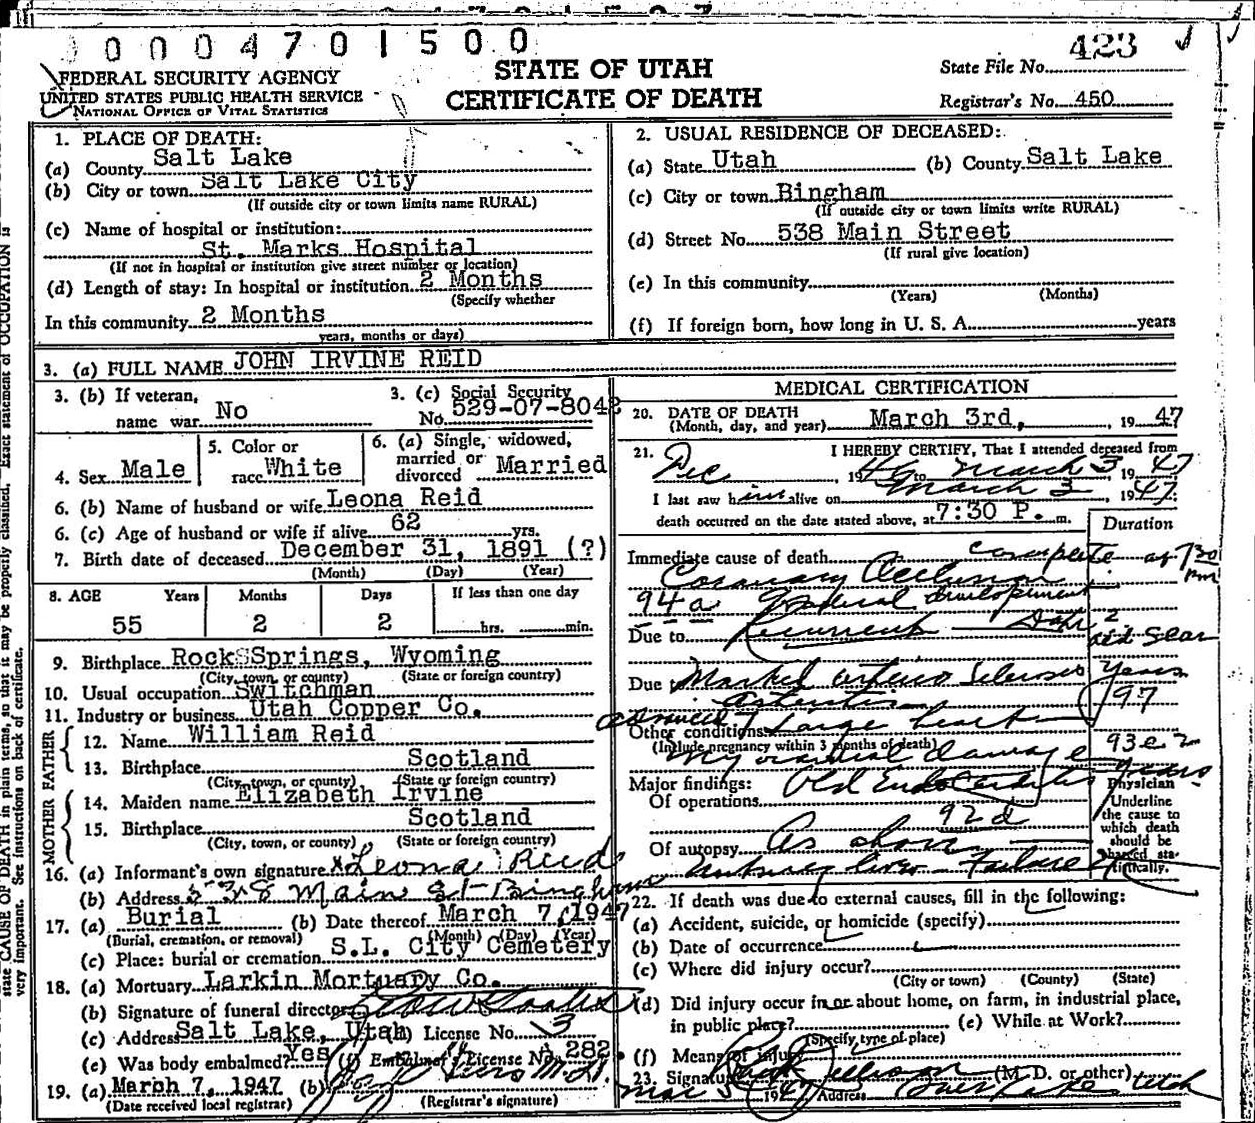 0004701500
423
FEDERAL SECURITY AGENCY
UNITED STATES PUBLIC HEALTH SERVICE
NATIONAL OFFICE OF VITAL STATISTICS
STATE OF UTAH
CERTIFICATE OF DEATH
State File No.
Registrar's No. 450
1. PLACE OF DEATH:
(a) County Salt Lake
(b) City or town Salt Lake City
(If outside city or town limits name RURAL)
(c) Name of hospital or institution:
St. Marks Hospital
(If not in hospital or institution give street number or location)
(d) Length of stay: In hospital or institution 2 Months
(Specify whether
In this community 2 Months
years, months or days)
2. USUAL RESIDENCE OF DECEASED:
(a) State Utah (b) County Salt Lake
(c) City or town Bingham
(If outside city or town limits write RURAL)
(d) Street No. 538 Main Street
(If rural give location)
(e) In this community
(Years) (Months)
(f) If foreign born, how long in U. S. A. years
3. (a) FULL NAME JOHN IRVINE REID
3. (b) If veteran,
name war No
3. (c) Social Security
No. 529-07-8042
4. Sex Male
5. Color or
race White
6. (a) Single, widowed,
married or
divorced Married
6. (b) Name of husband or wife Leona Reid
6. (c) Age of husband or wife if alive 62 yrs.
7. Birth date of deceased December 31, 1891 (?)
(Month) (Day) (Year)
8. AGE Years Months Days If less than one day
55 2 2 hrs. min.
9. Birthplace Rock Springs, Wyoming
(City, town, or county) (State or foreign country)
10. Usual occupation Switchman
11. Industry or business Utah Copper Co.
FATHER
12. Name William Reid
13. Birthplace Scotland
(City, town, or county) (State or foreign country)
MOTHER
14. Maiden name Elizabeth Irvine
15. Birthplace Scotland
(City, town, or county) (State or foreign country)
16. (a) Informant's own signature x Leona Reid
(b) Address 538 Main St Bingham
17. (a) Burial (b) Date thereof March 7, 1947
(Burial, cremation, or removal) (Month) (Day) (Year)
(c) Place: burial or cremation S.L. City Cemetery
18. (a) Mortuary Larkin Mortuary Co.
(b) Signature of funeral director
(c) Address Salt Lake, Utah (d) License No. 3
(e) Was body embalmed? Yes (f) Embalmer's License No. 282
19. (a) March 7, 1947 (b)
(Date received local registrar) (Registrar's signature)
MEDICAL CERTIFICATION
20. DATE OF DEATH
(Month, day, and year) March 3rd, 1947
21. I HEREBY CERTIFY, That I attended deceased from
Dec, 1946 to March 3 1947
I last saw him alive on March 3, 1947;
death occurred on the date stated above, at 7:30 P. m.
Duration
Immediate cause of death complete at 7:30 pm
Coronary Occlusion
94a Gradual development
Due to Recurrent
Due to Marked arterio sclerosis years
97
advanced Large heart
Other conditions
(Include pregnancy within 3 months of death)
Myocardial damage
93e2
years
Major findings: Old Endocarditis
Of operations
92d
Of autopsy As above
Failure
Physician
Underline
the cause to
which death
should be
charged sta-
tistically.
22. If death was due to external causes, fill in the following:
(a) Accident, suicide, or homicide (specify)
(b) Date of occurrence
(c) Where did injury occur?
(City or town) (County) (State)
(d) Did injury occur in or about home, on farm, in industrial place,
in public place? (e) While at Work?
(Specify type of place)
(f) Means of injury
23. Signature (M. D. or other)
Mar 5 1947 Address Salt Lake Utah
state CAUSE OF DEATH in plain terms, so that it may be properly classified. Exact statement of OCCUPATION is
very important. See instructions on back of certificate.